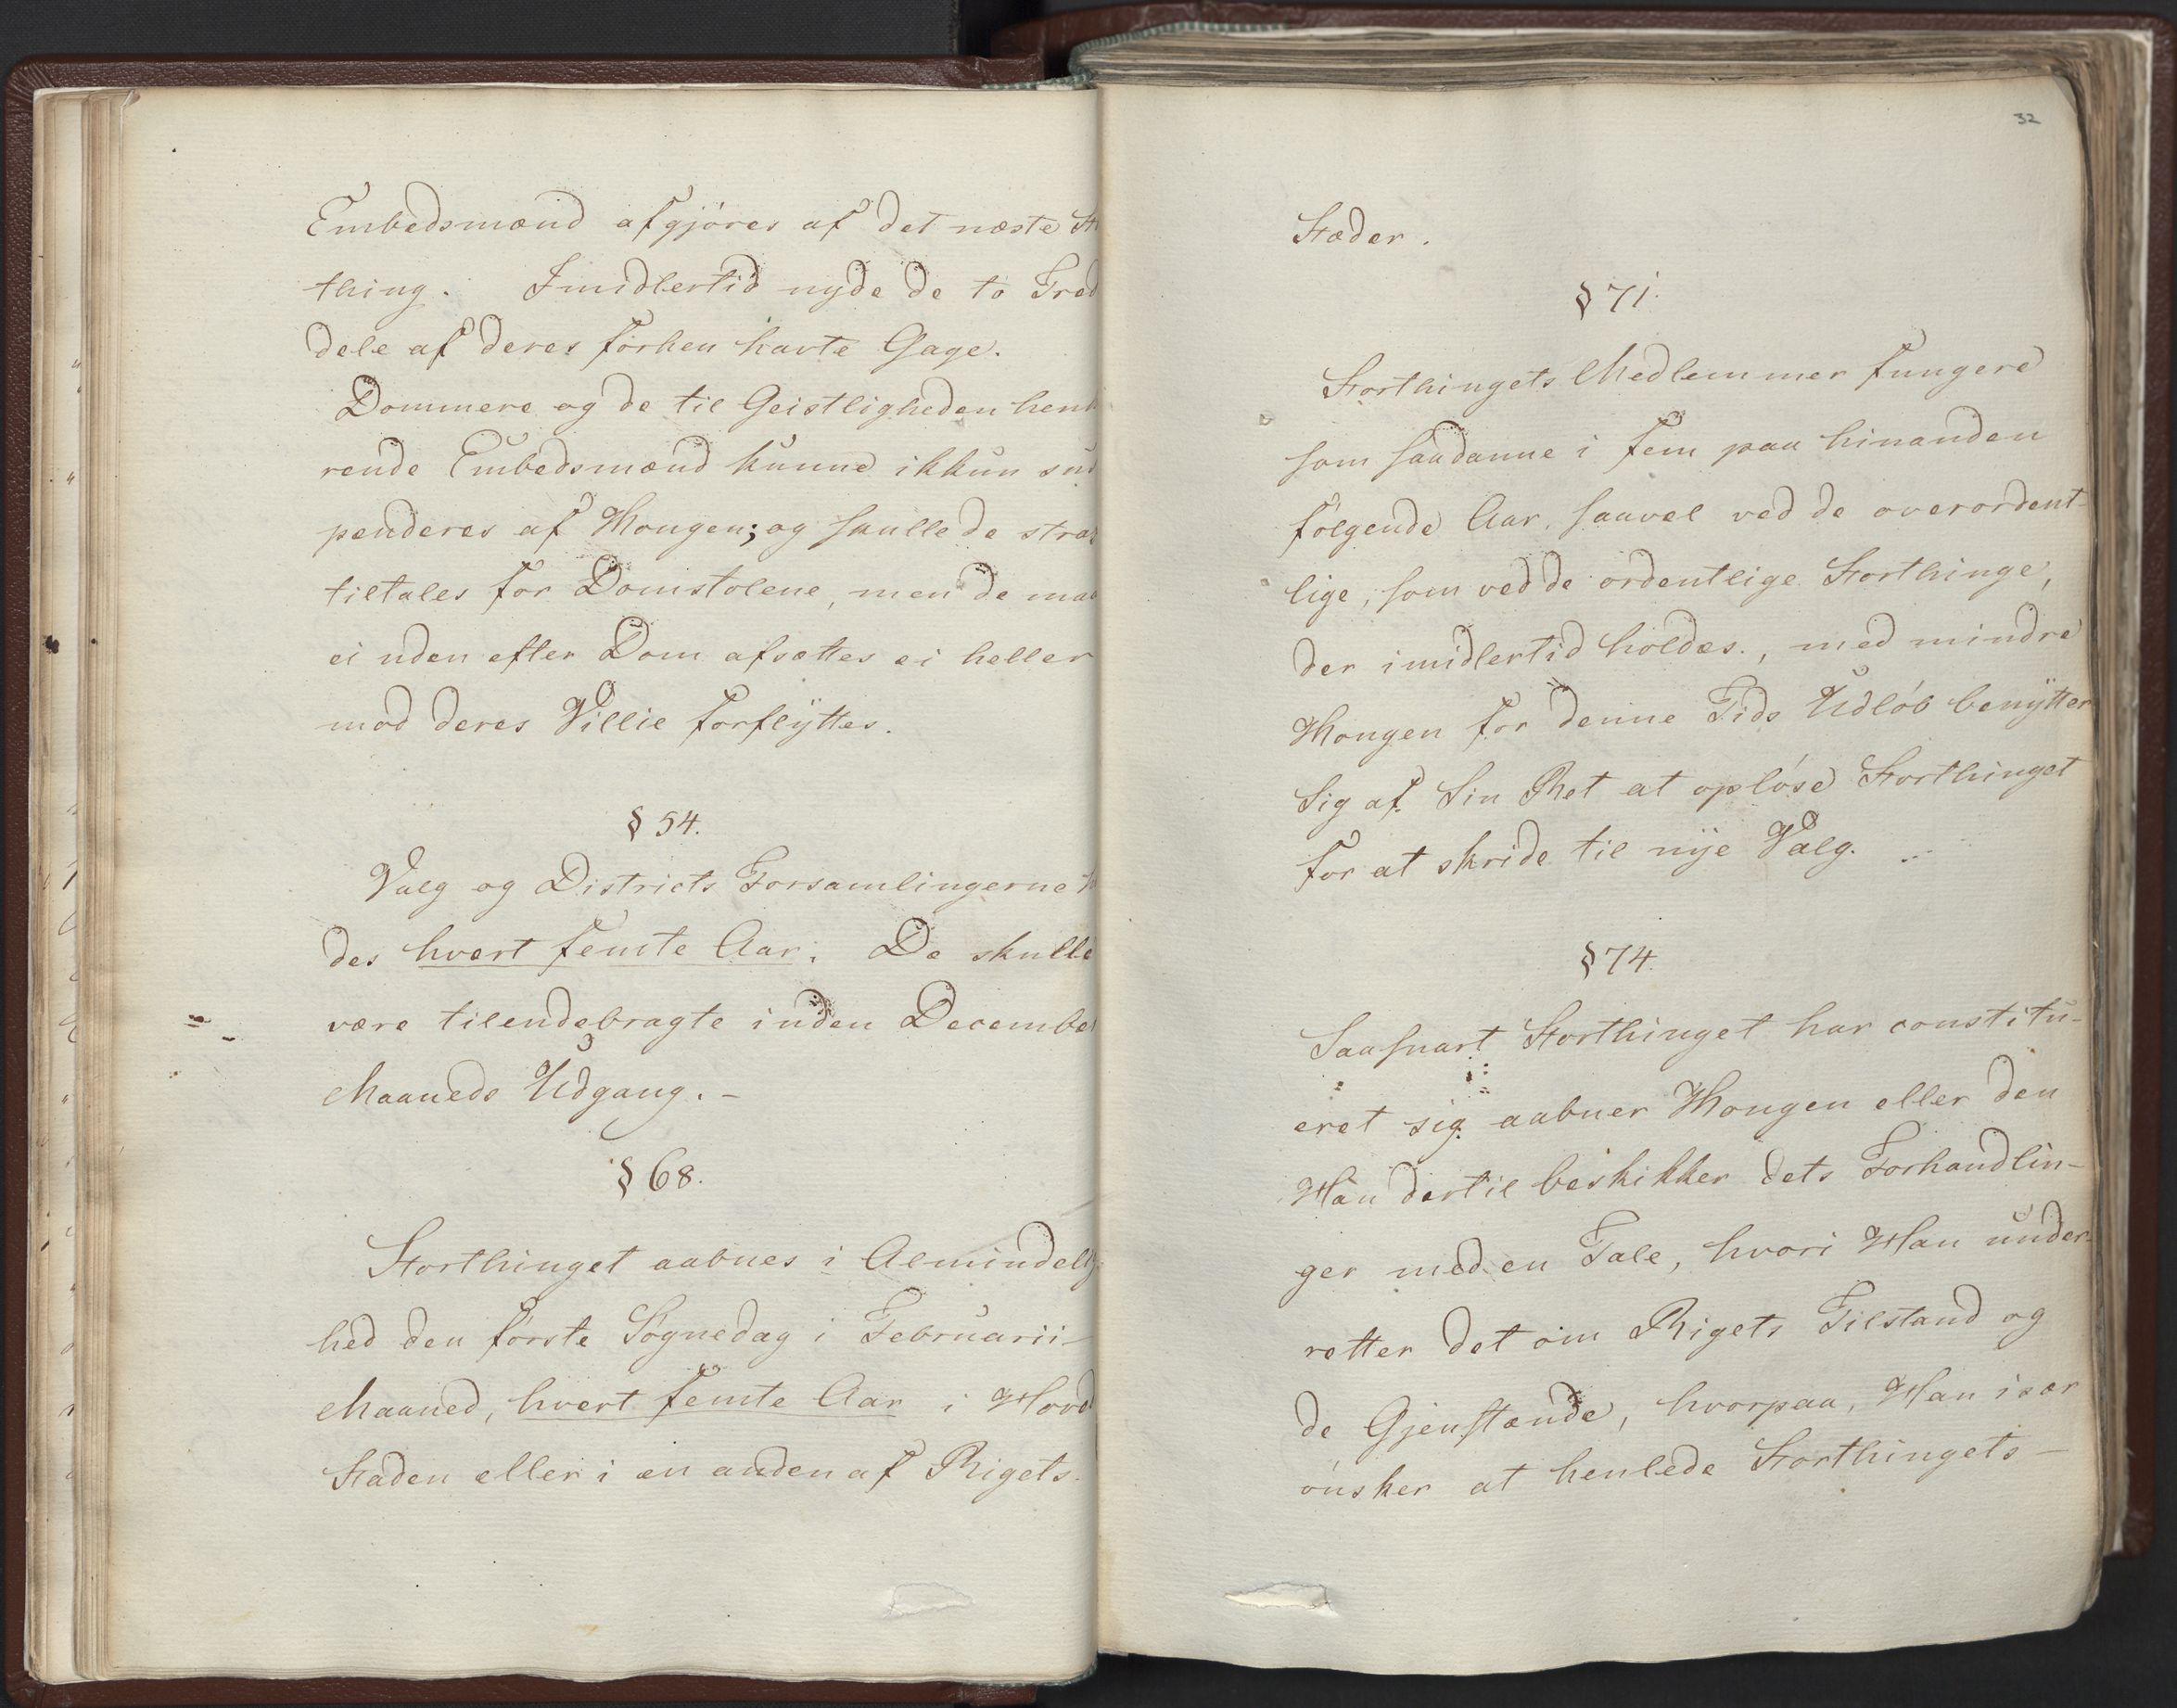 Embedsmænd afgjöres af det næste St
thing. Imidlertid nyde de to Tred
dele af deres forhen havte Gage.
Dommere og de til Geistligheden henh
rende Embedsmænd kunne ikkun sus
penderes af Kongen; og skulle de strax
tiltales for Domstolene, men de maa
ei uden efter Dom afsættes ei heller
mod deres Villie forflyttes.
§ 54.
Valg og Districts Forsamlingerne h
des hvert femte Aar. De skulle
være tilendebragte inden December
Maaneds Udgang. -
§ 68.
Storthinget aabnes i Almindelig
hed den förste Sögnedag i Februarii-
Maaned, hvert femte Aar i Hoved
Staden eller i en anden af Rigets
32
Stæder.
§ 71.
Storthingets Medlemmer fungere
som saadanne i fem paa hinanden
fölgende Aar, saavel ved de overordent-
lige, som ved de ordentlige Storthinge,
der imidlertid holdes., med mindre
Kongen for denne Tids Udlöb benytter
Sig af Sin Ret at oplöse Storthinget
for at skride til nye Valg.
§ 74.
Saasnart Storthinget har constitu-
eret sig aabner Kongen eller den
Han dertil beskikker dets Forhandlin-
ger med en Tale, hvori Han under-
retter det om Rigets Tilstand og
de Gjenstænde, hvorpaa, Han især
önsker at henlede Storthingets -